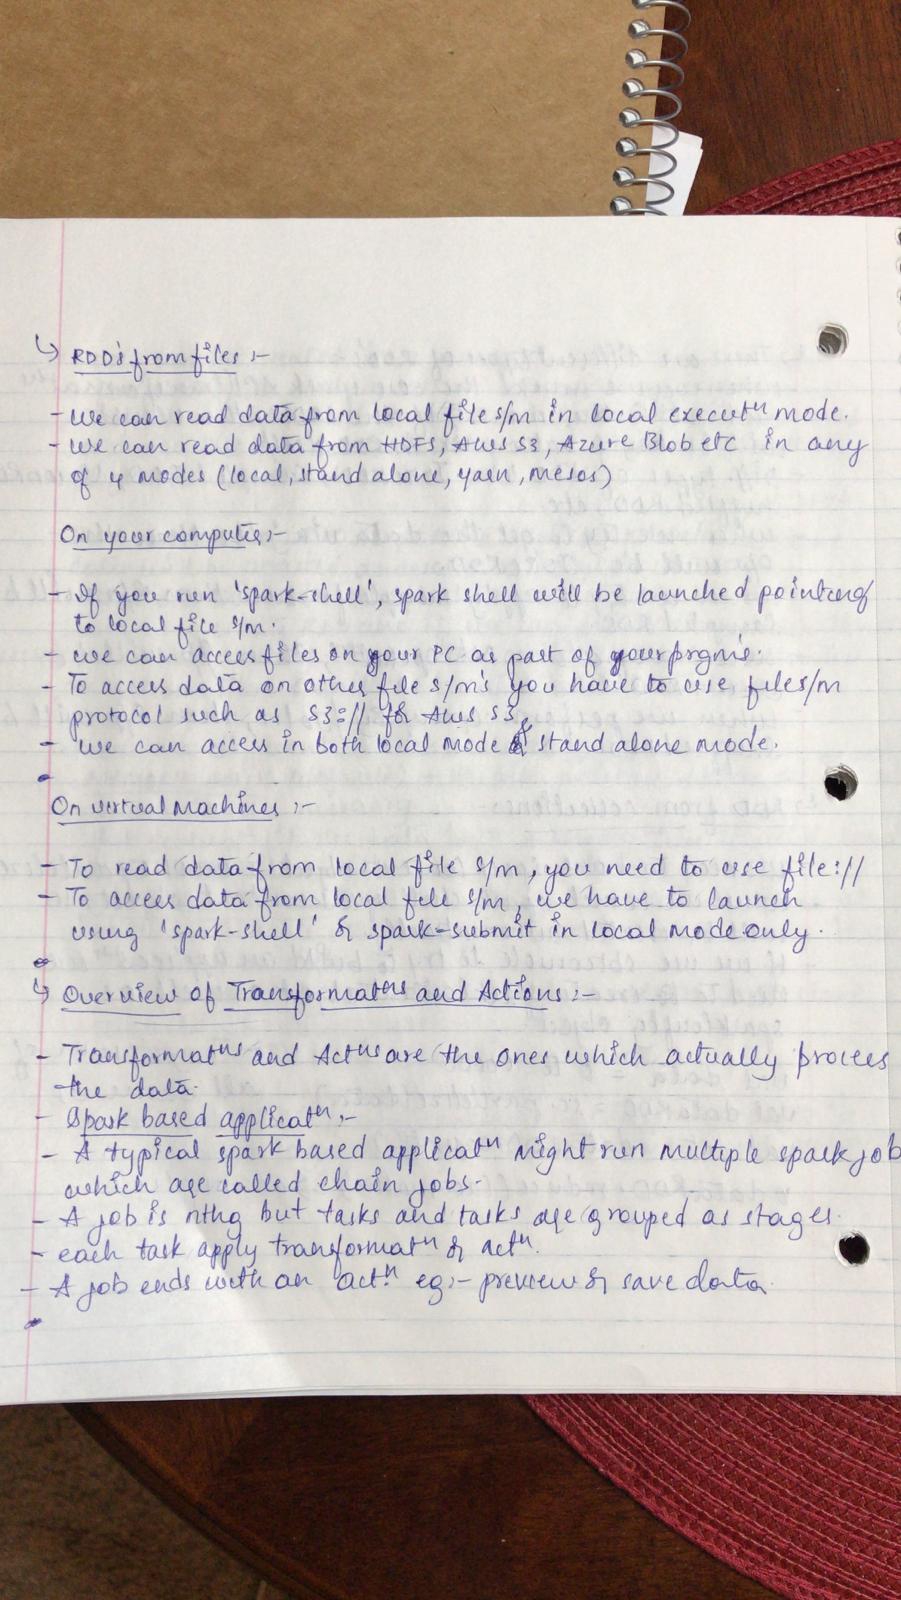 ↳ RDD's from files :-
- We can read data from local file s/m in local executⁿ mode.
- We can read data from HDFS, AWS S3, Azure Blob etc in any
of 4 modes (local, stand alone, yarn, mesos)
On your computer :-
- If you run 'spark-shell', spark shell will be launched pointing
to local file s/m.
- we can access files on your PC as part of your prgm's.
- To access data on other file s/m's you have to use file s/m
protocol such as S3:// for AWS S3.
- We can access in both local mode & stand alone mode.
On virtual Machines :-
- To read data from local file s/m, you need to use file://
- To access data from local file s/m, we have to launch
using 'spark-shell' & spark-submit in local mode only.
↳ Overview of Transformatⁿs and Actions :-
- Transformatⁿs and Actⁿs are the ones which actually process
the data.
- Spark based applicatⁿ :-
- A typical spark based applicatⁿ might run multiple spark job
which are called chain jobs.
- A job is nthg but tasks and tasks are grouped as stages.
- each task apply transformatⁿ & actⁿ.
- A job ends with an actⁿ eg :- preview & save data.